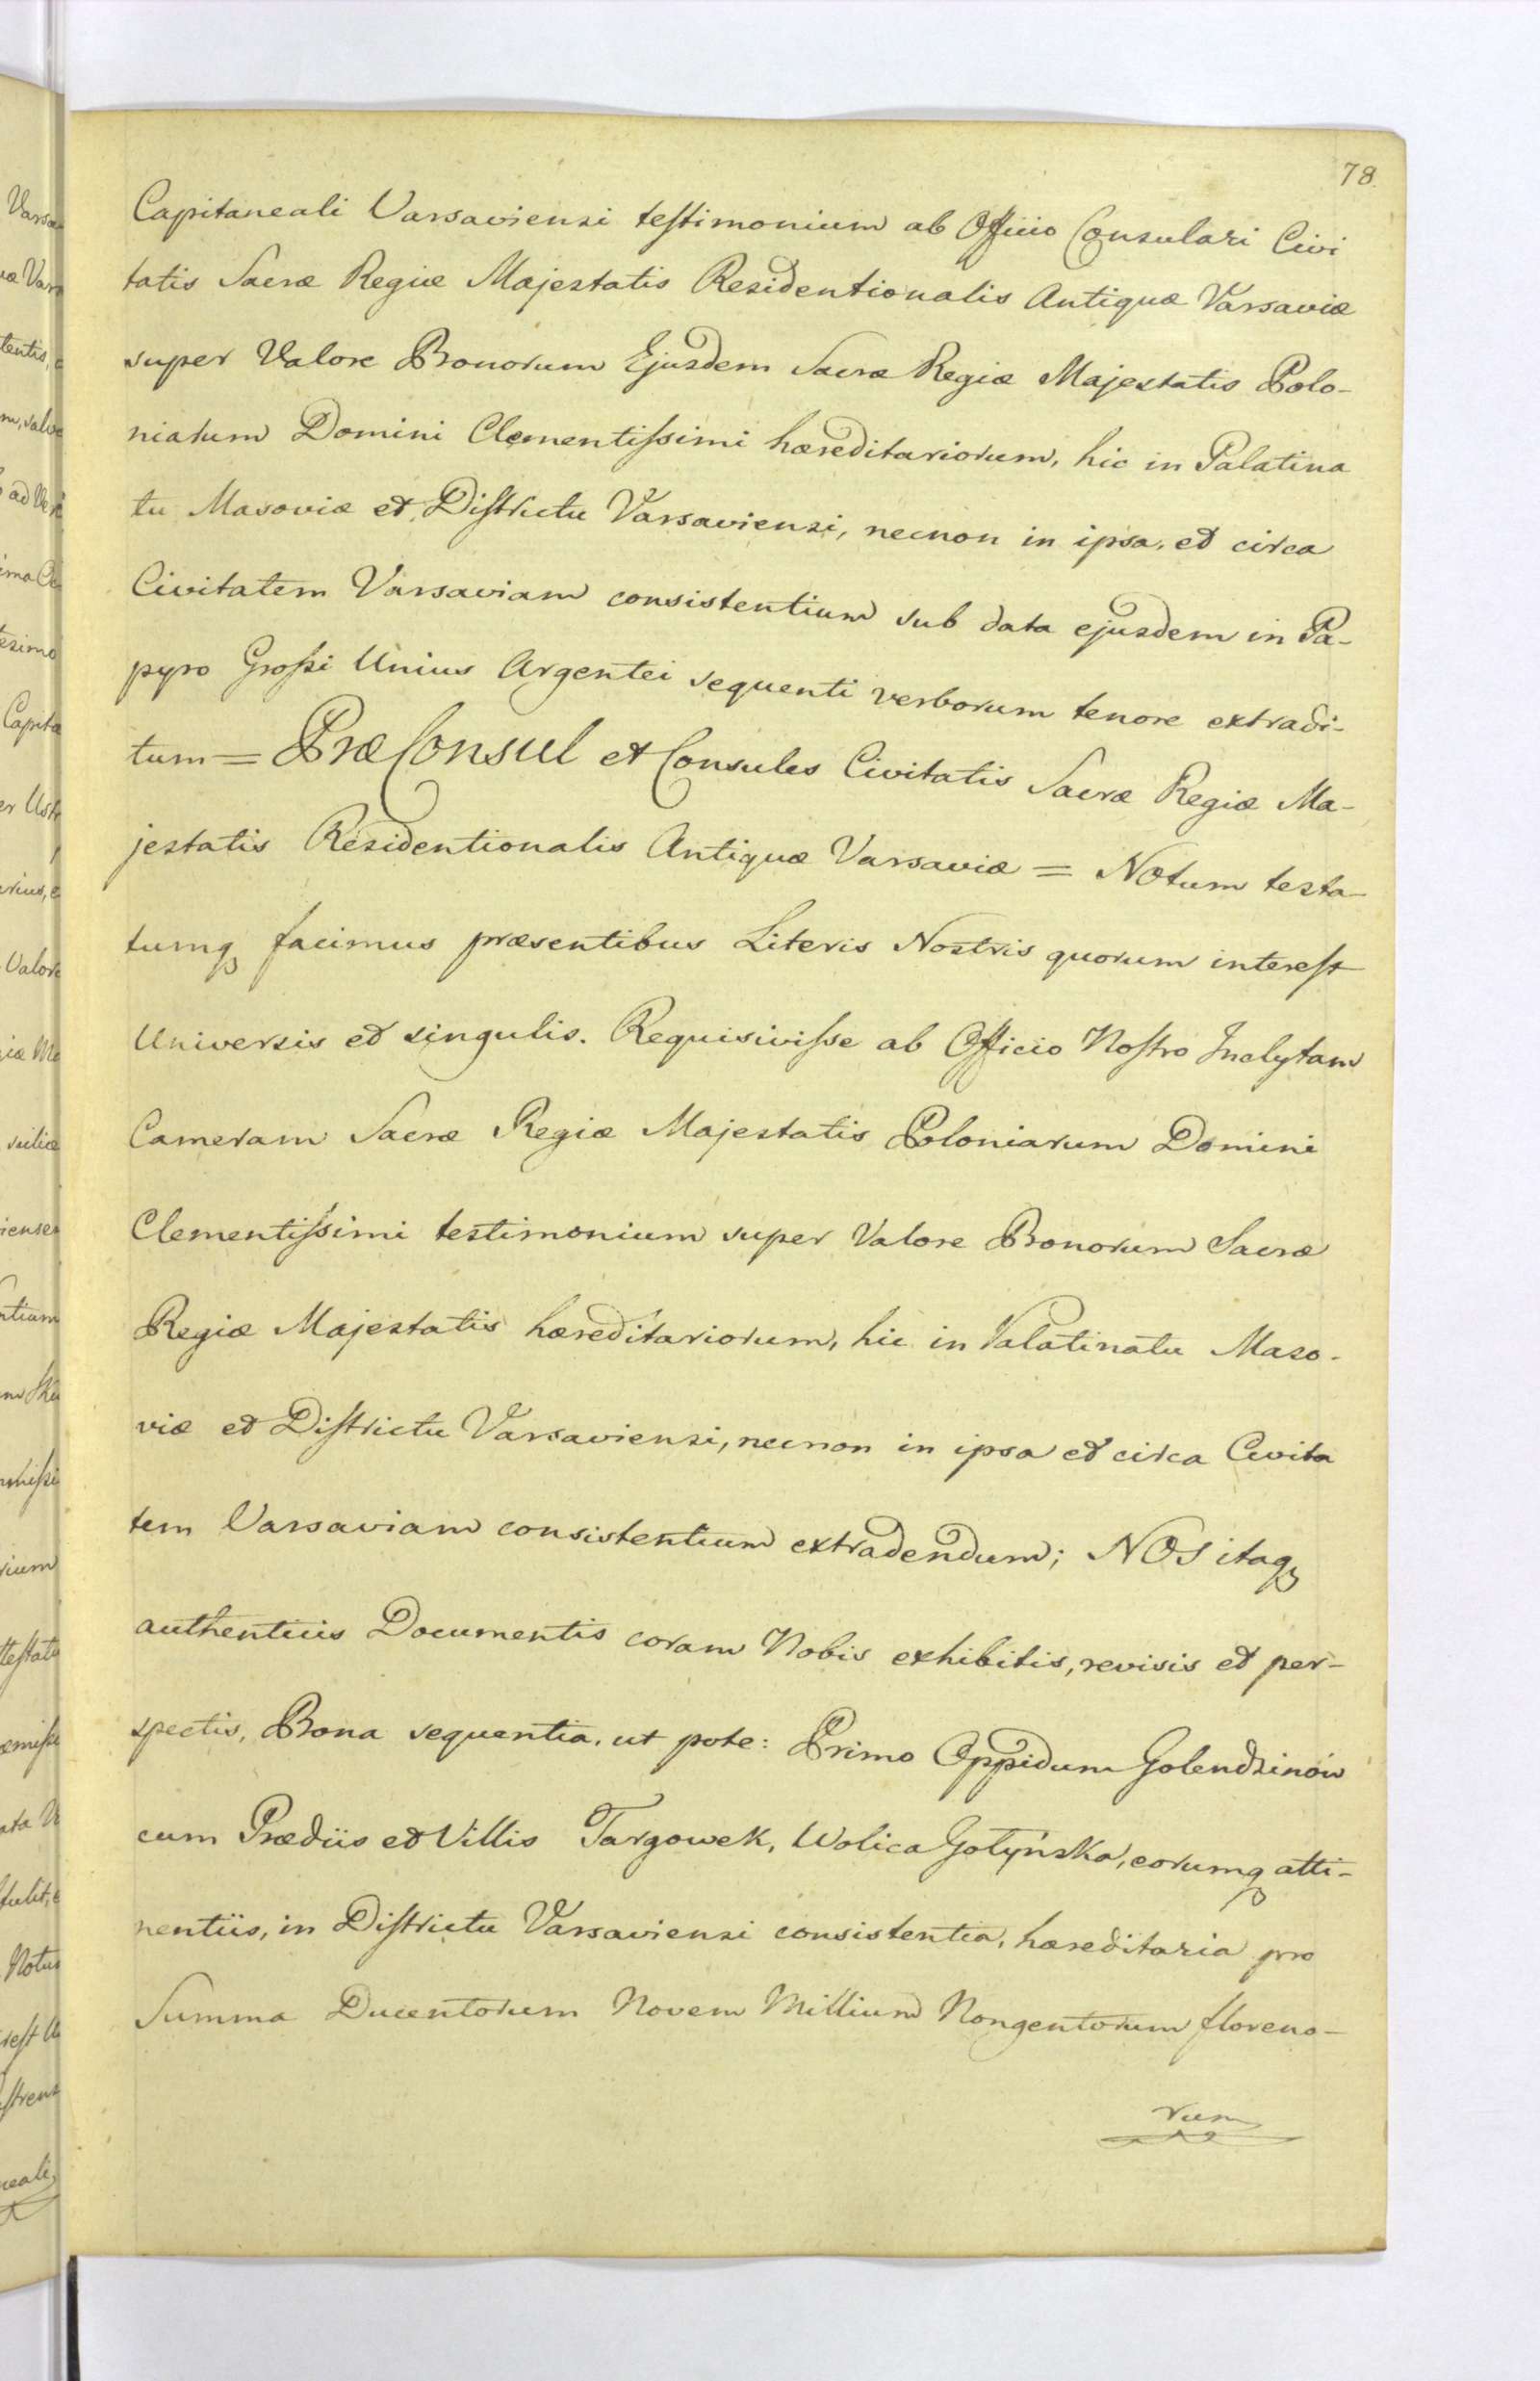 78.
Capitaneali Varsaviensi teſtimonium ab Officio Consulari Civi
tatis Sacræ Regiæ Majestatis Residentionalis Antiquæ Varsaviæ
super Valore Bonorum Ejusdem Sacræ Regiæ Majestatis Polo-
niarum Domini Clementiſsimi hæreditariorum, hic in Palatina
tu Masoviæ et Diſtrictu Varsaviensi, necnon in ipsa, et circa
Civitatem Varsaviam consistentium sub data ejusdem in Pa-
pyro Groſsi Unius Argentei sequenti verborum tenore extradi-
tum = PræConsul et Consules Civitatis Sacræ Regiæ Ma-
jestatis Residentionalis Antiquæ Varsaviæ = Notum testa-
tumqꝫ facimus præsentibus Literis Nostris quorum intereſt
Universis et singulis. Requisiviſse ab Officio Noſtro Inclytam
Cameram Sacræ Regiæ Majestatis Poloniarum Domini
Clementiſsimi testimonium super Valore Bonorum Sacræ
Regiæ Majestatis hæreditariorum, hic in Palatinatu Maso-
viæ et Diſtrictu Varsaviensi, necnon in ipsa et circa Civita
tem Varsaviam consistentium extradendum; NOS itaqꝫ
authenticis Documentis coram Nobis exhibitis, revisis et per-
spectis, Bona sequentia, ut pote: Primo Oppidum Golendzinów
cum Prædiis et Villis Targowek, Wolica Gołyńska, eorumqꝫ atti-
nentiis, in Diſtrictu Varsaviensi consistentia, hæreditaria pro
Summa Ducentorum Novem Millium Nongentorum floreno-
rum